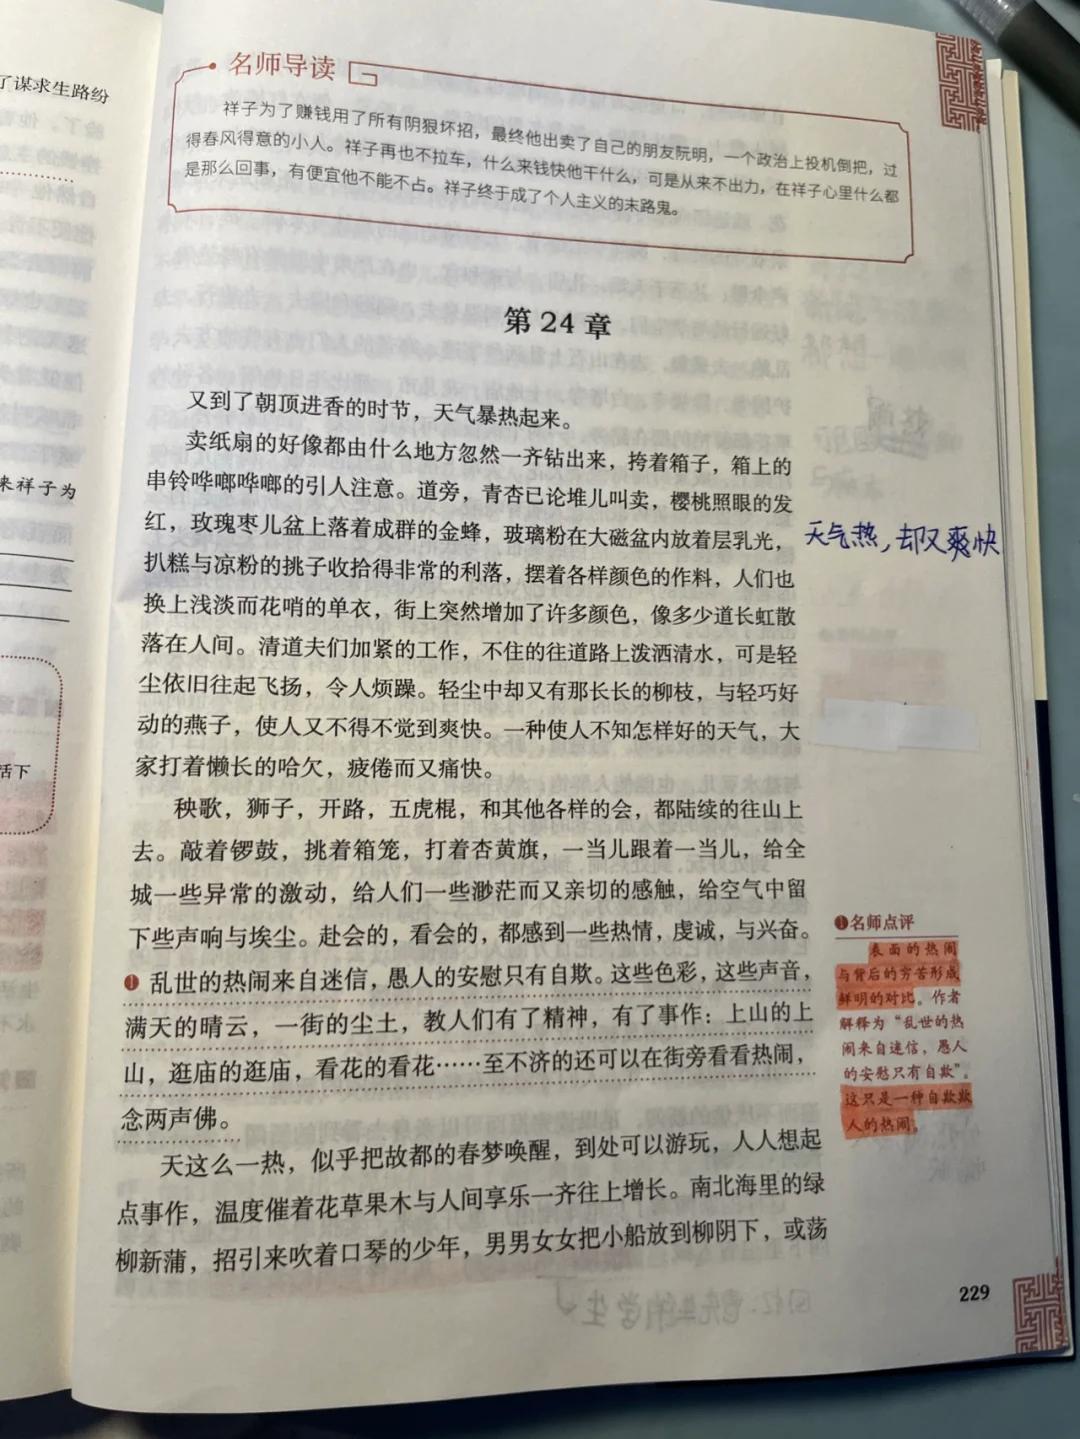 了谋求生路纷
来祥子为
活下
名师导读
祥子为了赚钱用了所有阴狠坏招，最终他出卖了自己的朋友阮明，一个政治上投机倒把，过
得春风得意的小人。祥子再也不拉车，什么来钱快他干什么，可是从来不出力，在祥子心里什么都
是那么回事，有便宜他不能不占。祥子终于成了个人主义的末路鬼。
第24章
又到了朝顶进香的时节，天气暴热起来。
卖纸扇的好像都由什么地方忽然一齐钻出来，挎着箱子，箱上的
串铃哗啷哗啷的引人注意。道旁，青杏已论堆儿叫卖，樱桃照眼的发
红，玫瑰枣儿盆上落着成群的金蜂，玻璃粉在大磁盆内放着层乳光，
扒糕与凉粉的挑子收拾得非常的利落，摆着各样颜色的作料，人们也
换上浅淡而花哨的单衣，街上突然增加了许多颜色，像多少道长虹散
落在人间。清道夫们加紧的工作，不住的往道路上泼洒清水，可是轻
尘依旧往起飞扬，令人烦躁。轻尘中却又有那长长的柳枝，与轻巧好
动的燕子，使人又不得不觉到爽快。一种使人不知怎样好的天气，大
家打着懒长的哈欠，疲倦而又痛快。
秧歌，狮子，开路，五虎棍，和其他各样的会，都陆续的往山上
去。敲着锣鼓，挑着箱笼，打着杏黄旗，一当儿跟着一当儿，给全
城一些异常的激动，给人们一些渺茫而又亲切的感触，给空气中留
下些声响与埃尘。赴会的，看会的，都感到一些热情，虔诚，与兴奋。
❶ 乱世的热闹来自迷信，愚人的安慰只有自欺。这些色彩，这些声音，
满天的晴云，一街的尘土，教人们有了精神，有了事作：上山的上
山，逛庙的逛庙，看花的看花……至不济的还可以在街旁看看热闹，
念两声佛。
天这么一热，似乎把故都的春梦唤醒，到处可以游玩，人人想起
点事作，温度催着花草果木与人间享乐一齐往上增长。南北海里的绿
柳新蒲，招引来吹着口琴的少年，男男女女把小船放到柳阴下，或荡
天气热，却又爽快
❶名师点评
表面的热闹
与背后的穷苦形成
鲜明的对比。作者
解释为“乱世的热
闹来自迷信，愚人
的安慰只有自欺”。
这只是一种自欺欺
人的热闹。
229